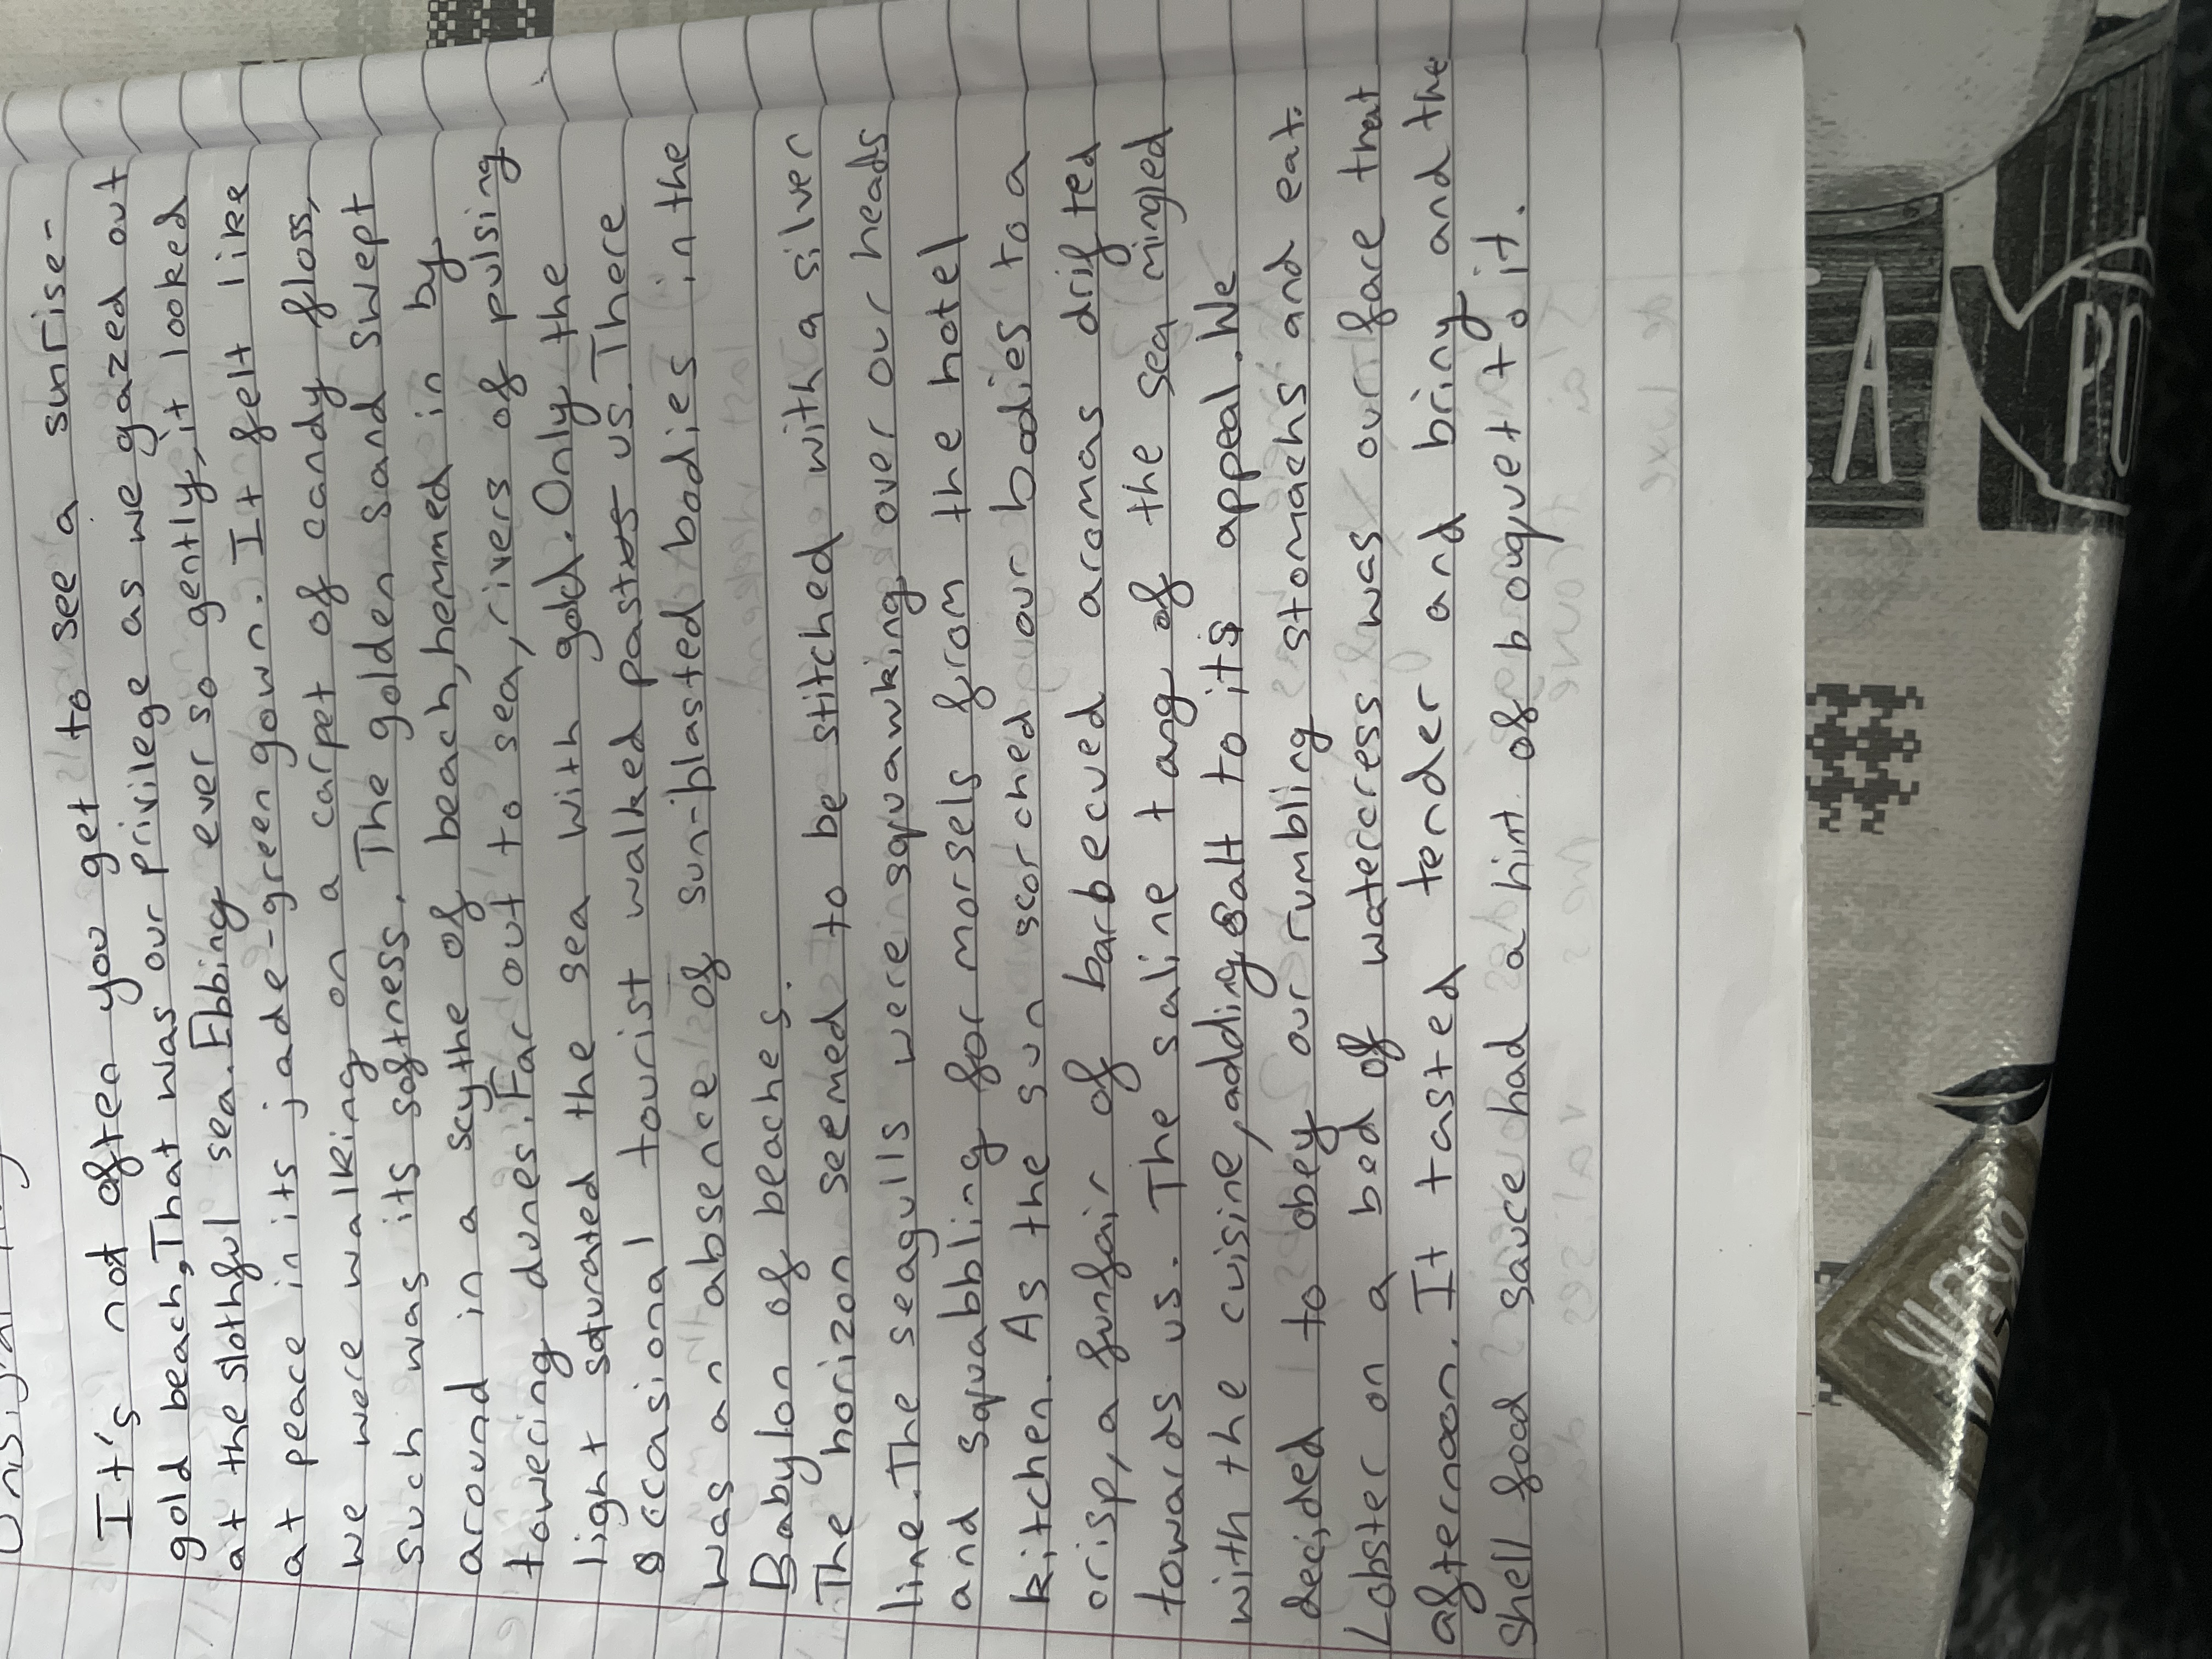 It's not often you get to see a sunrise-
gold beach, That was our privilege as we gazed out
at the slothful sea. Ebbing ever so gently, it looked
at peace in its jade-green gown. It felt like
we were walking on a carpet of candy floss,
such was its softness. The golden sand swept
around in a scythe of beach, hemmed in by
towering dunes. Far out to sea, rivers of pulsing
light saturated the sea with gold. Only the
occasional tourist walked past us. There
was an absence of sun-blasted bodies in the
Babylon of beaches.
The horizon seemed to be stitched with a silver
line. The seagulls were squawking over our heads
and squabbling for morsels from the hotel
kitchen. As the sun scorched our bodies to a
crisp, a funfair of barbecued aromas drifted
towards us. The saline tang of the sea mingled
with the cuisine, adding salt to its appeal. We
decided to obey our rumbling stomachs and eat.
Lobster on a bed of watercress was our fare that
afternoon. It tasted tender and briny and the
shell food sauce had a hint of bouquet to it.
A
PO